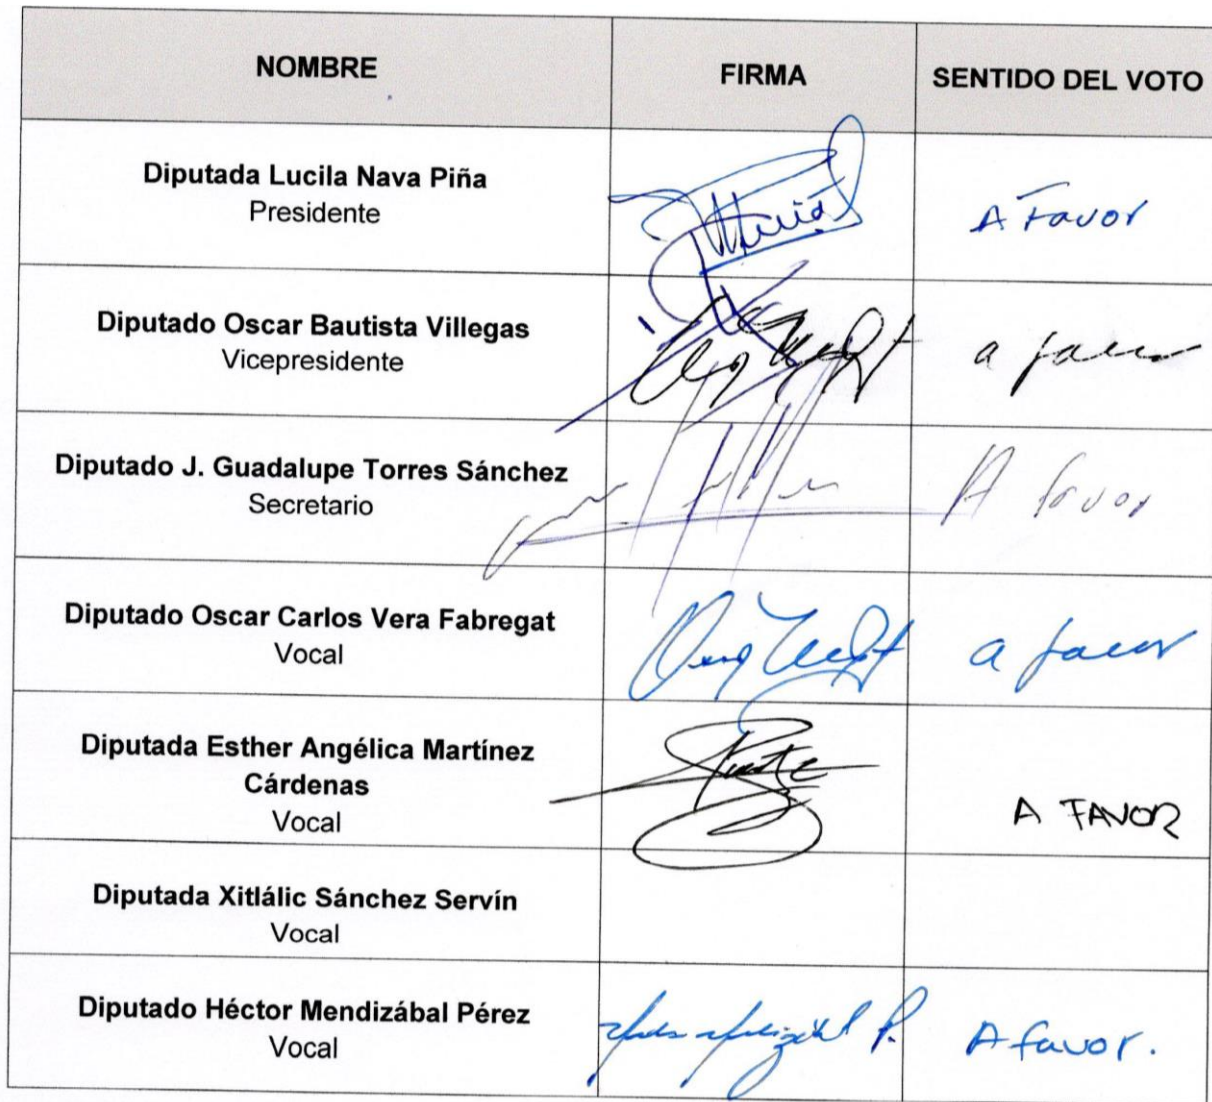 NOMBRE FIRMA SENTIDO DEL VOTO
Diputada Lucila Nava Piña
Presidente
A Favor
Diputado Oscar Bautista Villegas
Vicepresidente
a favor
Diputado J. Guadalupe Torres Sánchez
Secretario
A favor
Diputado Oscar Carlos Vera Fabregat
Vocal
a favor
Diputada Esther Angélica Martínez
Cárdenas
Vocal
A FAVOR
Diputada Xitlálic Sánchez Servín
Vocal
Diputado Héctor Mendizábal Pérez
Vocal
A favor.